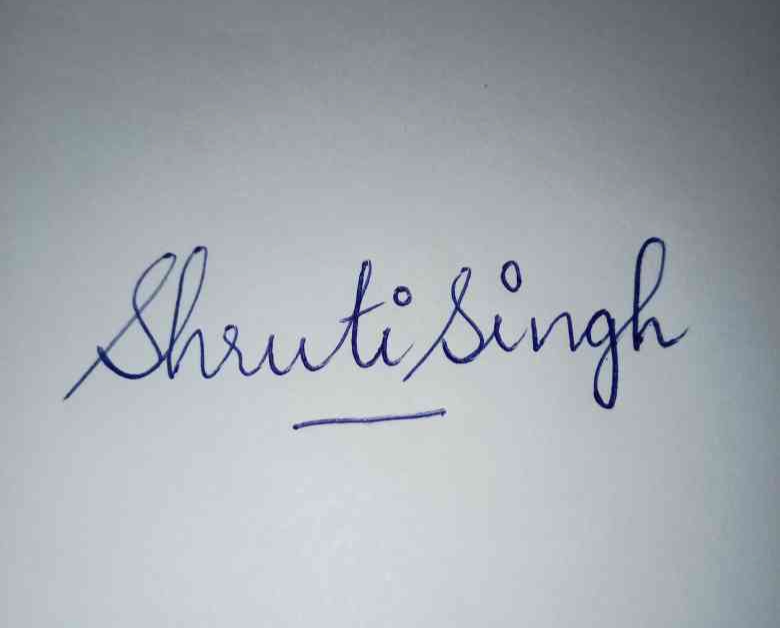 Shruti Singh